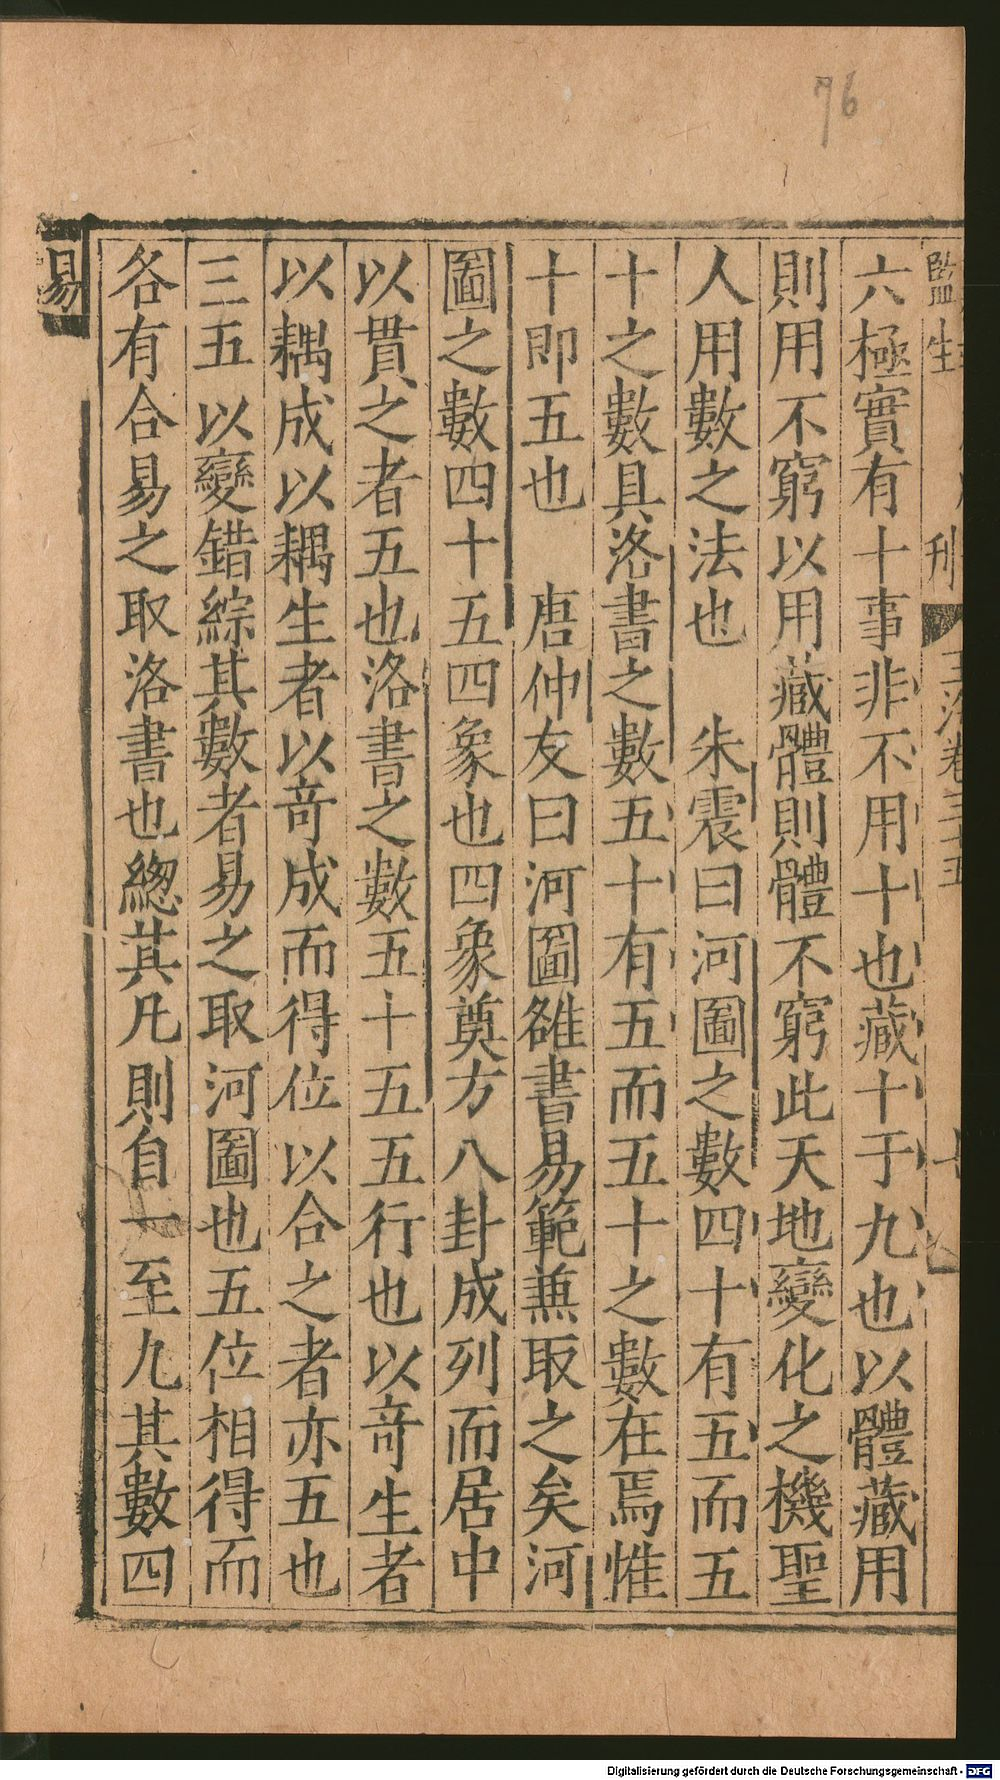 76
監生
刊
玉海卷三十五
六極實有十事非不用十也藏十于九也以體藏用
則用不窮以用藏體則體不窮此天地變化之機聖
人用數之法也　朱震曰河圖之數四十有五而五
十之數具洛書之數五十有五而五十之數在焉惟
十即五也　唐仲友曰河圖雒書易範兼取之矣河
圖之數四十五四象也四象奠方八卦成列而居中
以貫之者五也洛書之數五十五五行也以竒生者
以耦成以耦生者以竒成而得位以合之者亦五也
三五以變錯綜其數者易之取河圖也五位相得而
各有合易之取洛書也總其凡則自一至九其數四
易
Digitalisierung gefördert durch die Deutsche Forschungsgemeinschaft - DFG